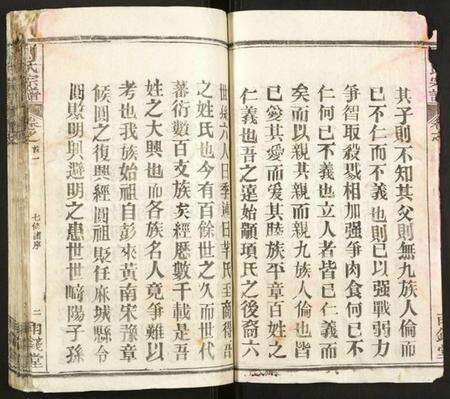 其子則不知其父則無九族人倫而
已不仁而不義也則已以强戰弱力
爭智取殺戮相加强爭肉食何已不
仁何已不義也立人者皆已仁義而
矣而以親其親而親九族人倫也皆
已愛其愛而愛其睦族平章百姓之
仁義也吾之遠始顓頊氏之後裔六
世孫六人曰季連曰芈氏至商得吾
之姓氏也今有百餘世之久而世代
蕃衍數百支族矣經歷數千載是吾
姓之大興也而各族名人竟爭難以
考也我族始祖自彭來黃南宋豫章
候圓之復興經圓祖貶任麻城縣令
圓敗明興避明之患世世崎陽子孫
氏宗譜
卷之首一
七修譜序
二
堂